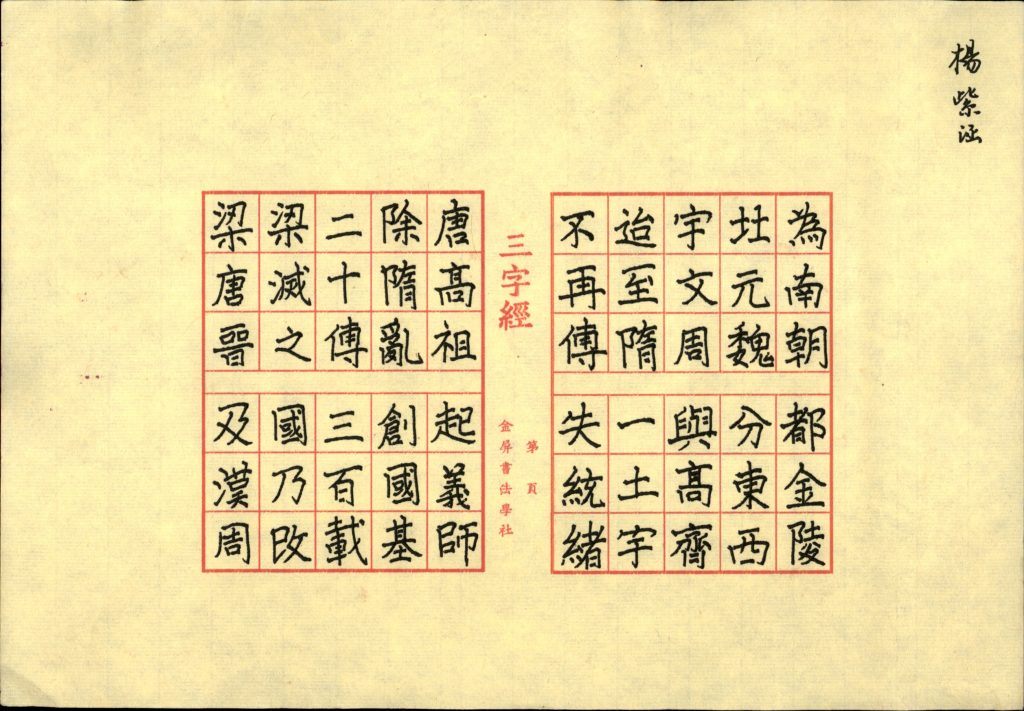 楊紫涵
為南朝都金陵
北元魏分東西
宇文周與髙齊
迨至隋一土宇
不再傳失統緒
三字經
第頁
金屏書法學社
唐髙祖起義師
除隋亂創國基
二十傳三百載
梁滅之國乃改
梁唐晉及漢周